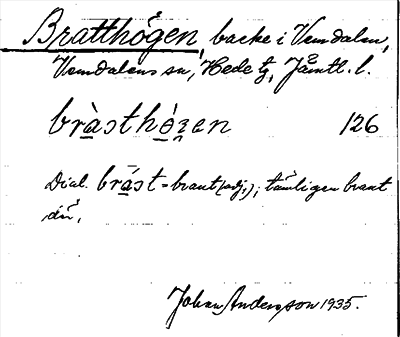 Bratthögen, backe i Vemdalen,
Vemdalens sn, Hede tg, Jämtl. l.
bràsthö́gen 126
Dial. brást = brant (adj.); tämligen brant
där.
Johan Andersson 1935.